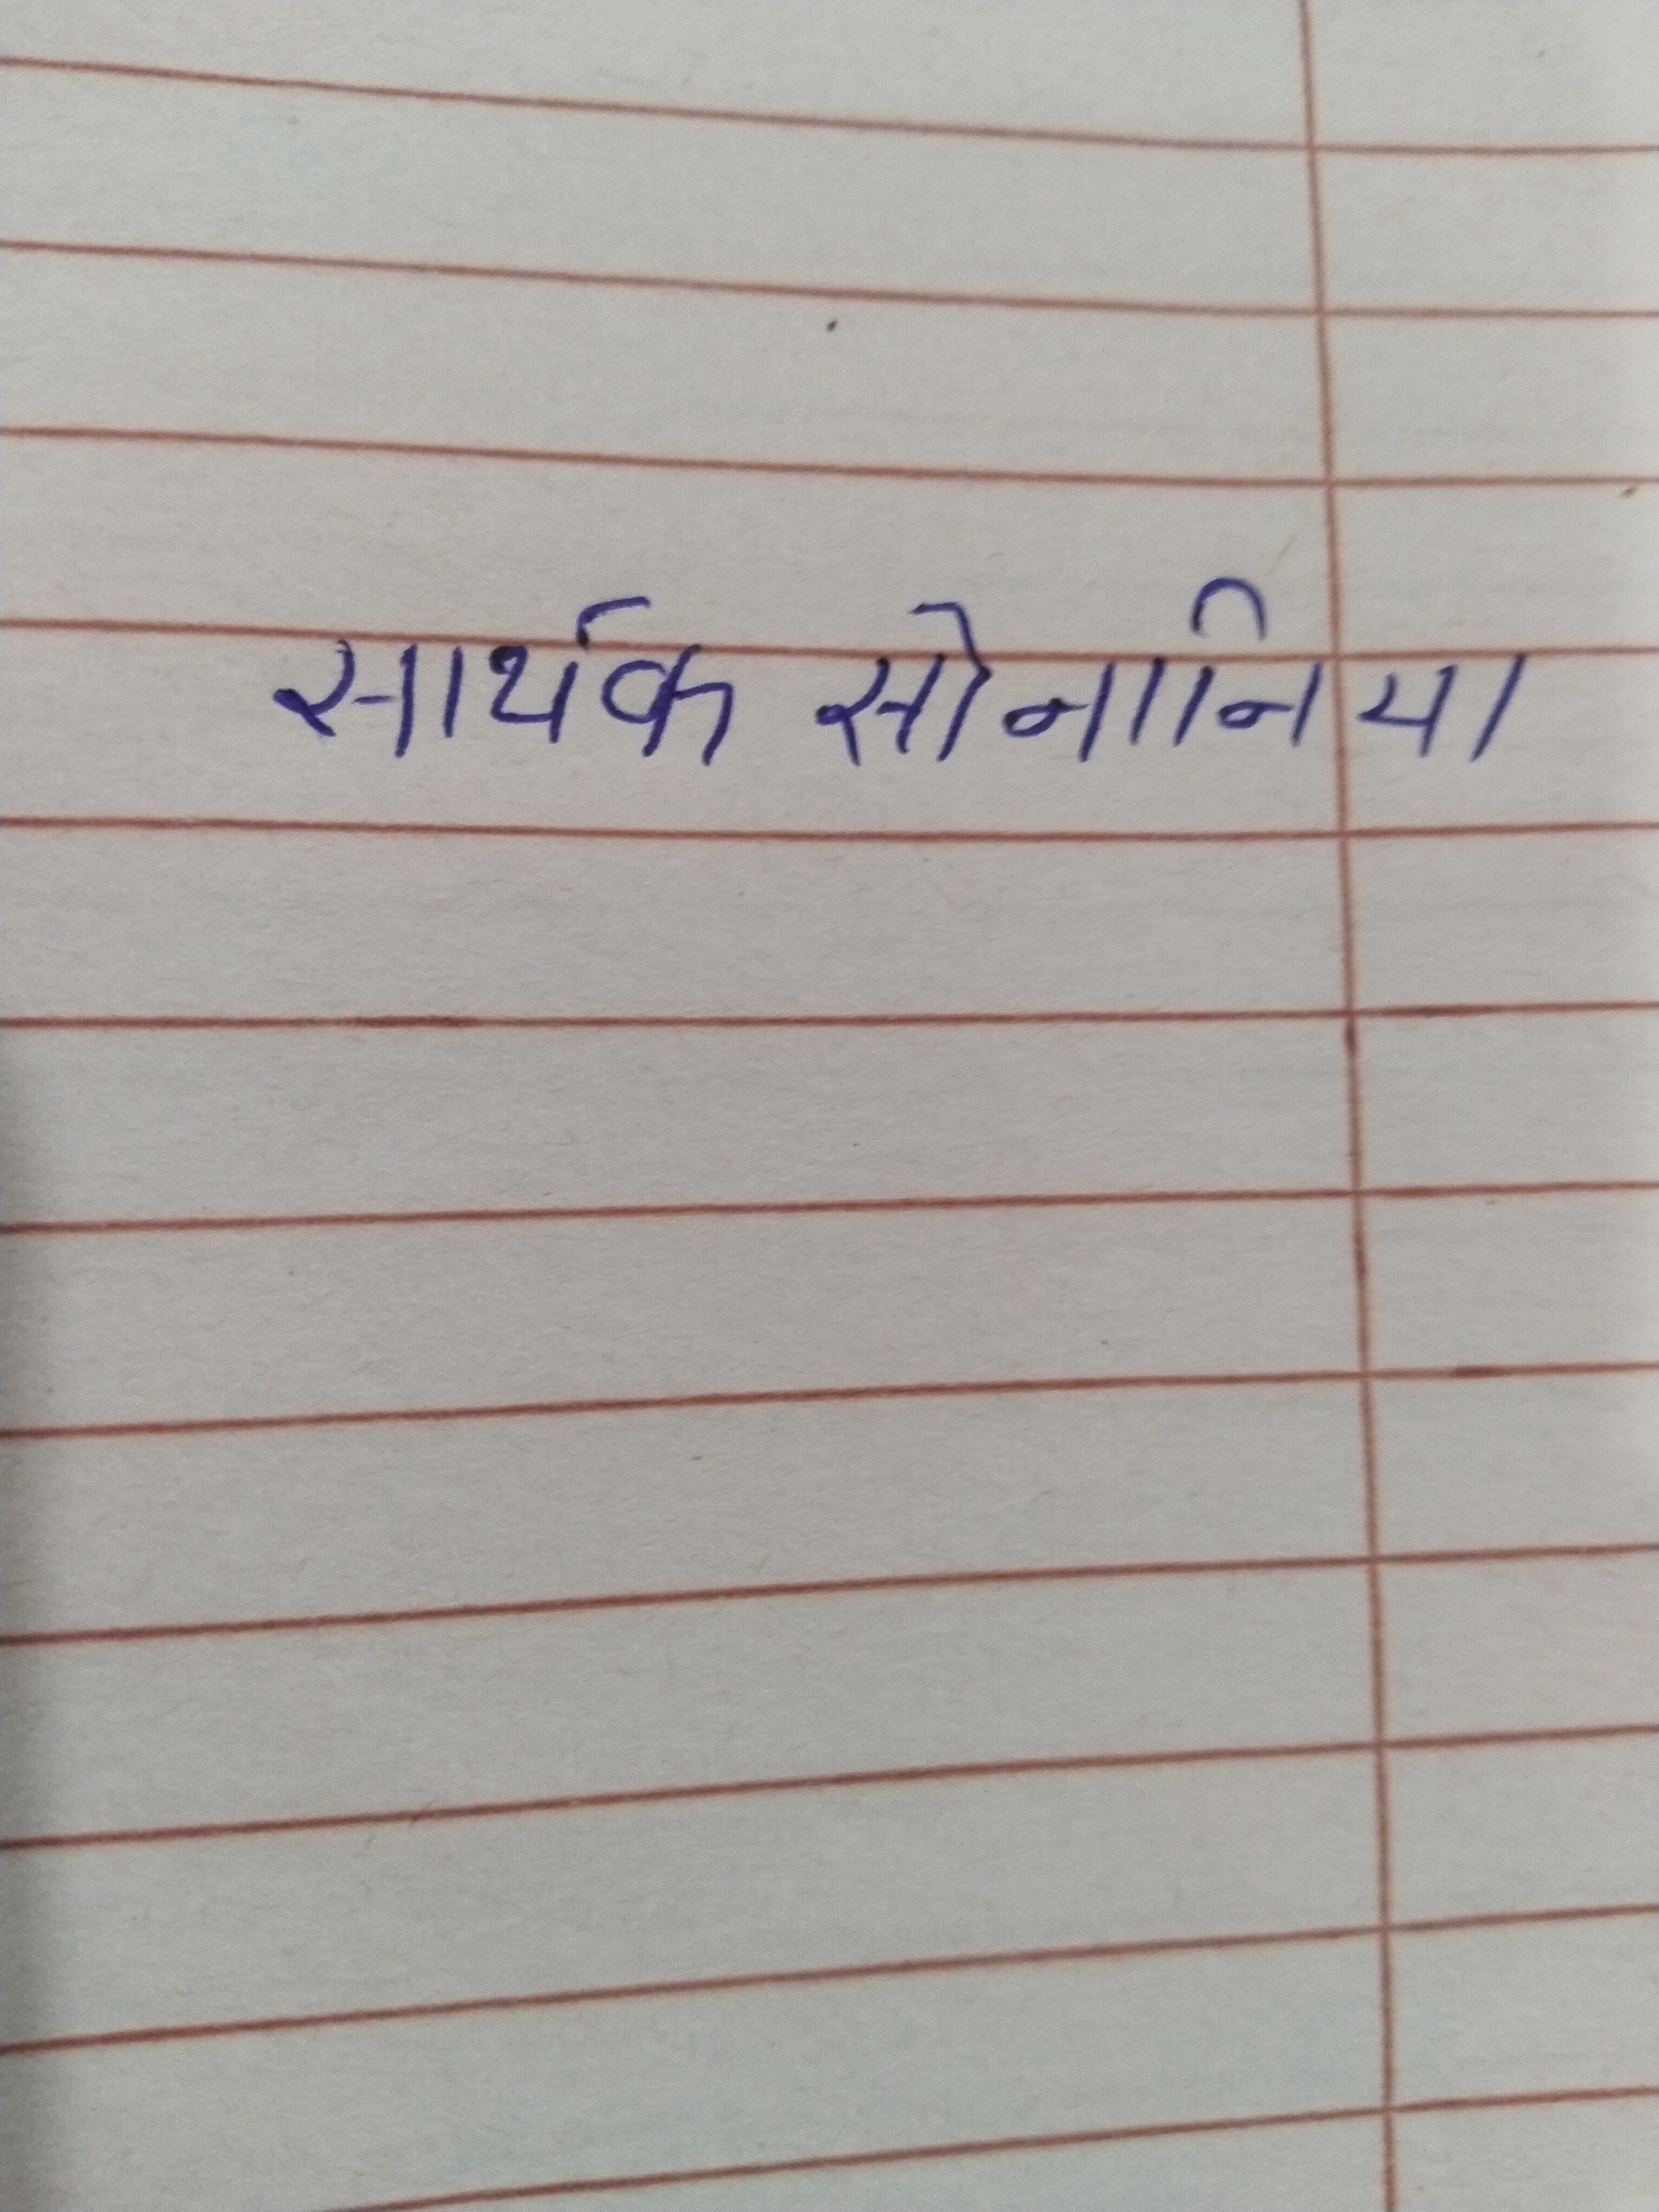 सार्थक सोनानिया